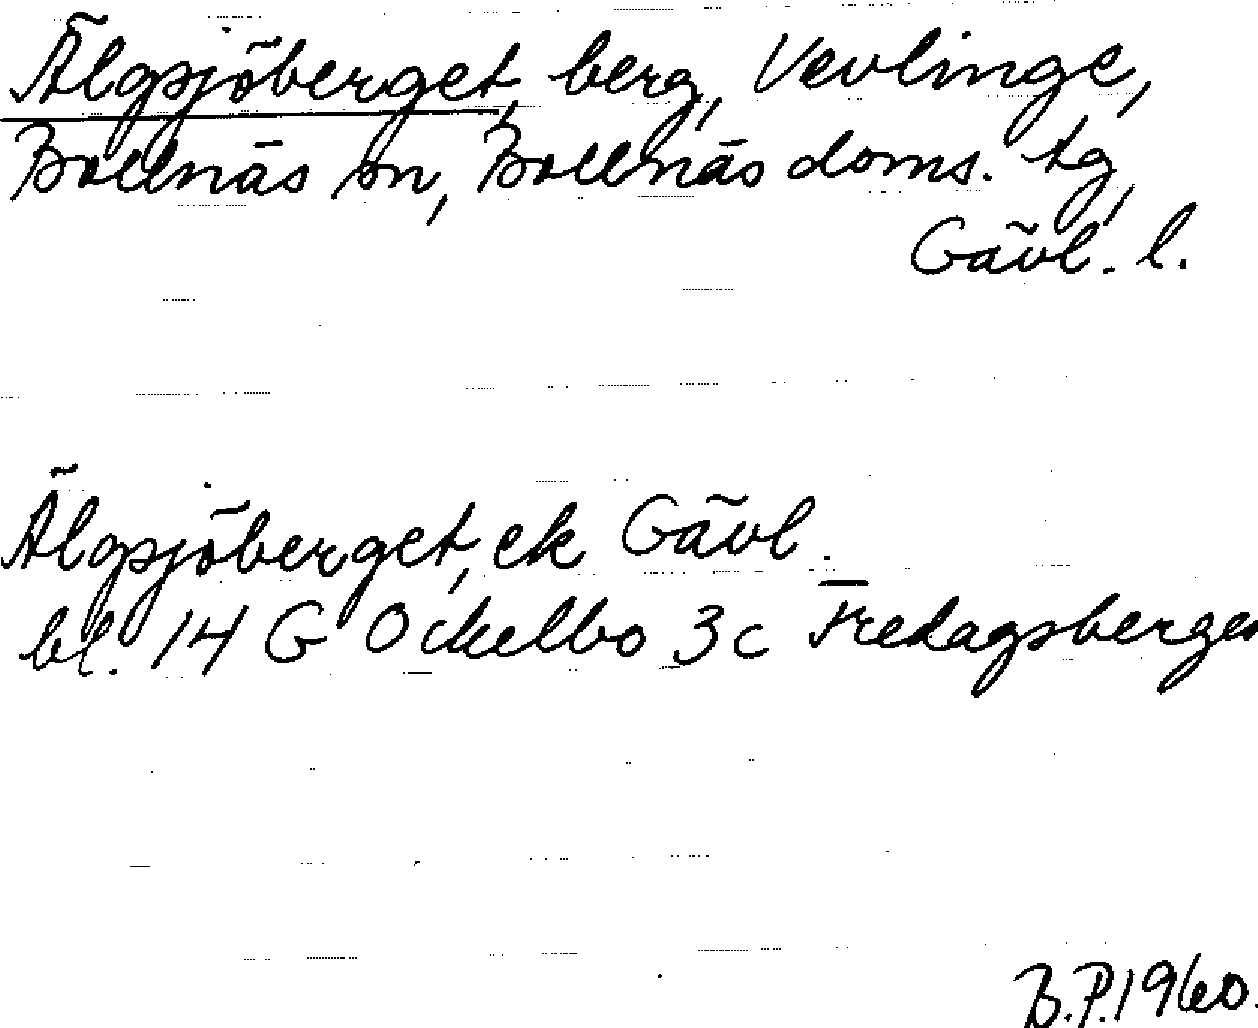 Älgsjöberget, berg, Vevlinge,
Bollnäs sn, Bollnäs doms. tg,
Gävl. l.
Älgsjöberget, ek Gävl.
bl. 14 G Ockelbo 3c Fredagsbergen
B.P. 1960.